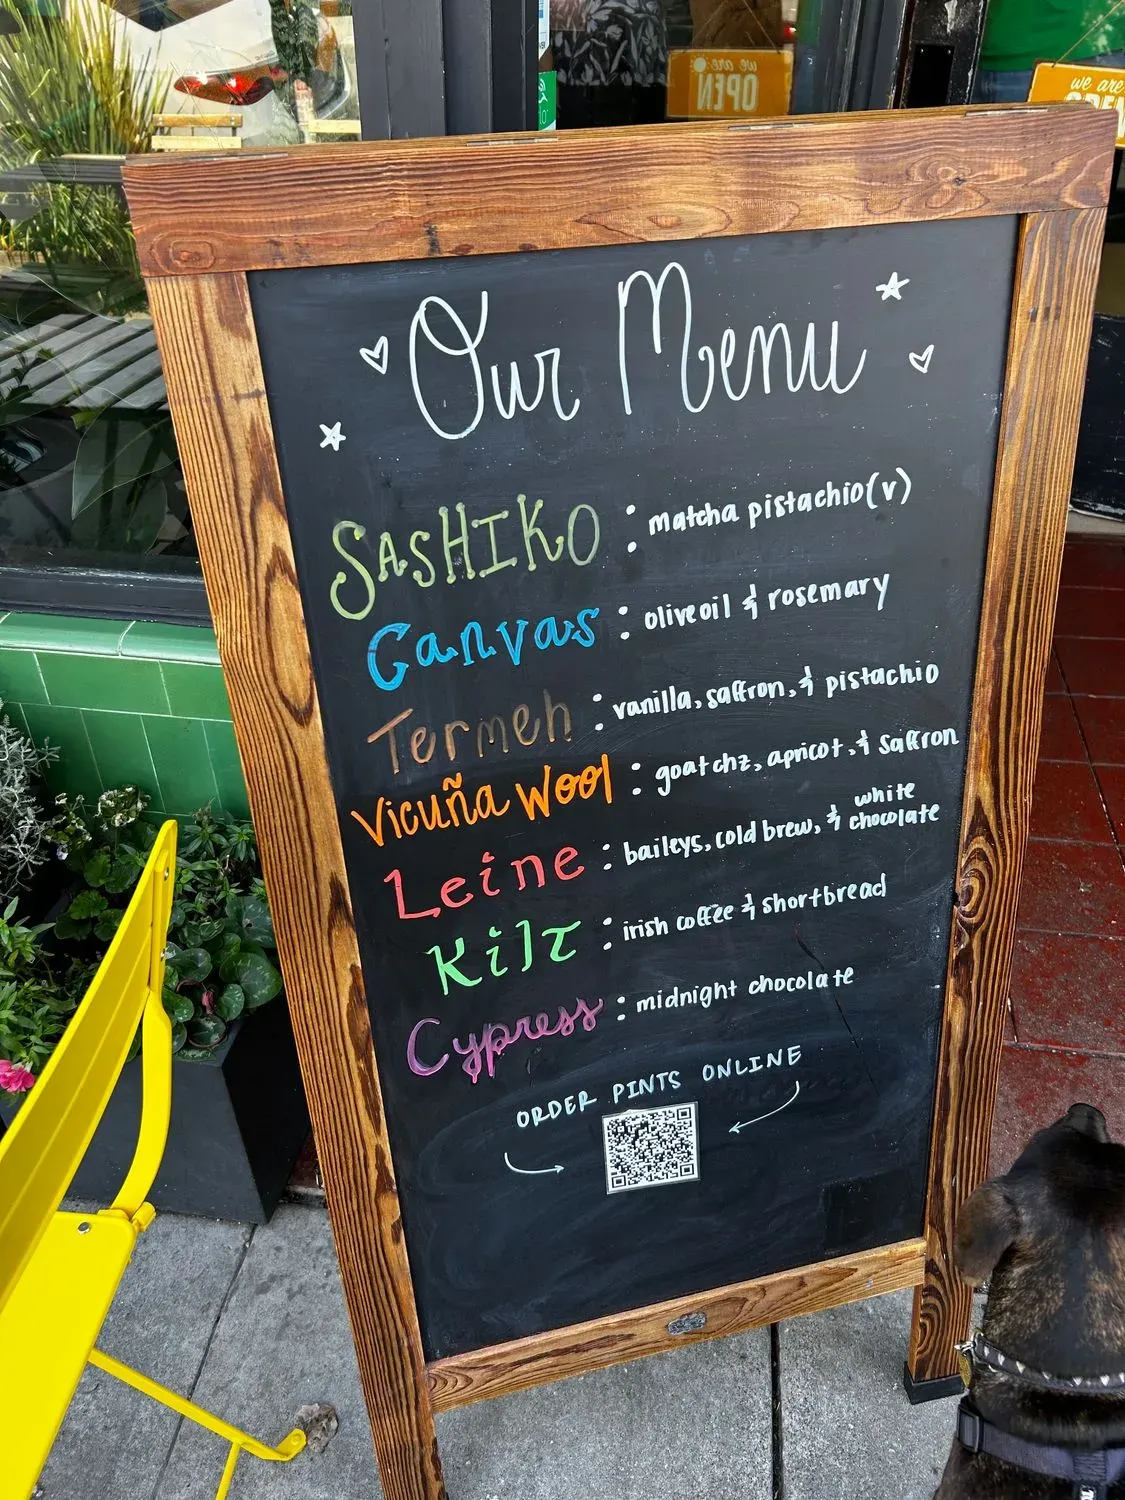 we are
OPEN
we are
OPEN
Our Menu
SASHIKO : matcha pistachio(v)
Canvas : olive oil & rosemary
Termeh : vanilla, saffron, & pistachio
Vicuña Wool : goat chz, apricot, & saffron
Leine : baileys, cold brew, & white chocolate
Kilt : irish coffee & shortbread
Cypress : midnight chocolate
ORDER PINTS ONLINE